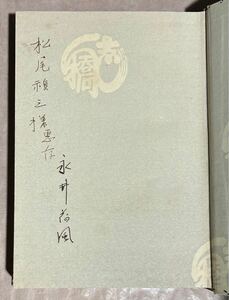 松尾禎三様恵存
永井荷風